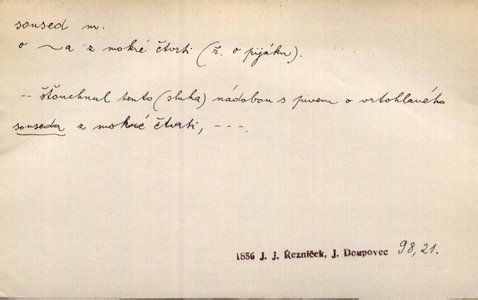 soused m.
o ~a z mokré čtvrti (ř. o pijáku).
-- šťouchnul tento (sluha) nádobou s pivem o vrtohlavého
souseda z mokré čtvrti, ---.
1856 J. J. Řezníček, J. Doupovec 98,21.